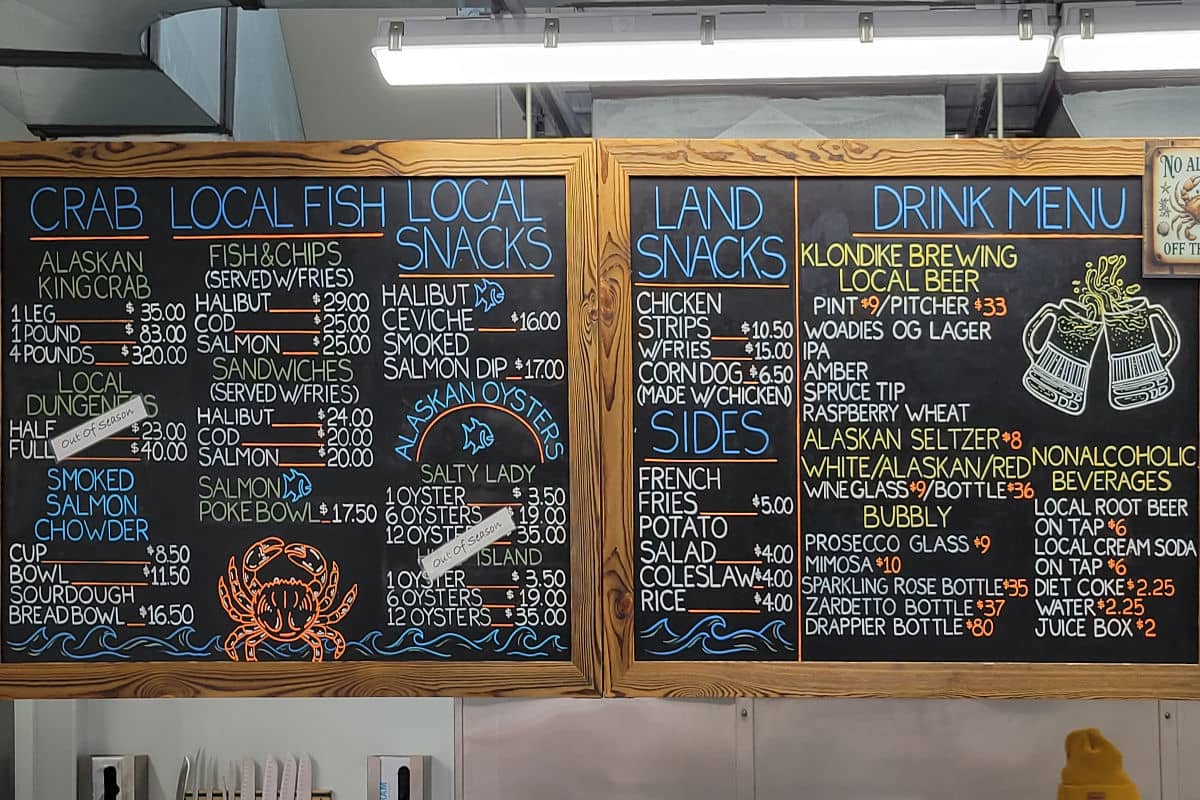 CRAB
ALASKAN
KING CRAB
1 LEG $35.00
1 POUND $83.00
4 POUNDS $320.00
LOCAL
DUNGENESS
HALF $23.00
FULL $40.00
Out Of Season
SMOKED
SALMON
CHOWDER
CUP $8.50
BOWL $11.50
SOURDOUGH
BREAD BOWL $16.50
LOCAL FISH
FISH & CHIPS
(SERVED W/FRIES)
HALIBUT $29.00
COD $25.00
SALMON $25.00
SANDWICHES
(SERVED W/FRIES)
HALIBUT $24.00
COD $20.00
SALMON $20.00
SALMON
POKE BOWL $17.50
LOCAL
SNACKS
HALIBUT
CEVICHE $16.00
SMOKED
SALMON DIP $17.00
ALASKAN OYSTERS
SALTY LADY
1 OYSTER $3.50
6 OYSTERS $19.00
12 OYSTERS $35.00
Out Of Season
ISLAND
1 OYSTER $3.50
6 OYSTERS $19.00
12 OYSTERS $35.00
LAND
SNACKS
CHICKEN
STRIPS $10.50
W/FRIES $15.00
CORN DOG $6.50
(MADE W/CHICKEN)
SIDES
FRENCH
FRIES $5.00
POTATO
SALAD $4.00
COLESLAW $4.00
RICE $4.00
DRINK MENU
KLONDIKE BREWING
LOCAL BEER
PINT $9/PITCHER $33
WOADIES OG LAGER
IPA
AMBER
SPRUCE TIP
RASPBERRY WHEAT
ALASKAN SELTZER $8
WHITE/ALASKAN/RED
WINE GLASS $9/BOTTLE $36
BUBBLY
PROSECCO GLASS $9
MIMOSA $10
SPARKLING ROSE BOTTLE $35
ZARDETTO BOTTLE $37
DRAPPIER BOTTLE $80
NONALCOHOLIC
BEVERAGES
LOCAL ROOT BEER
ON TAP $6
LOCAL CREAM SODA
ON TAP $6
DIET COKE $2.25
WATER $2.25
JUICE BOX $2
NO
OFF